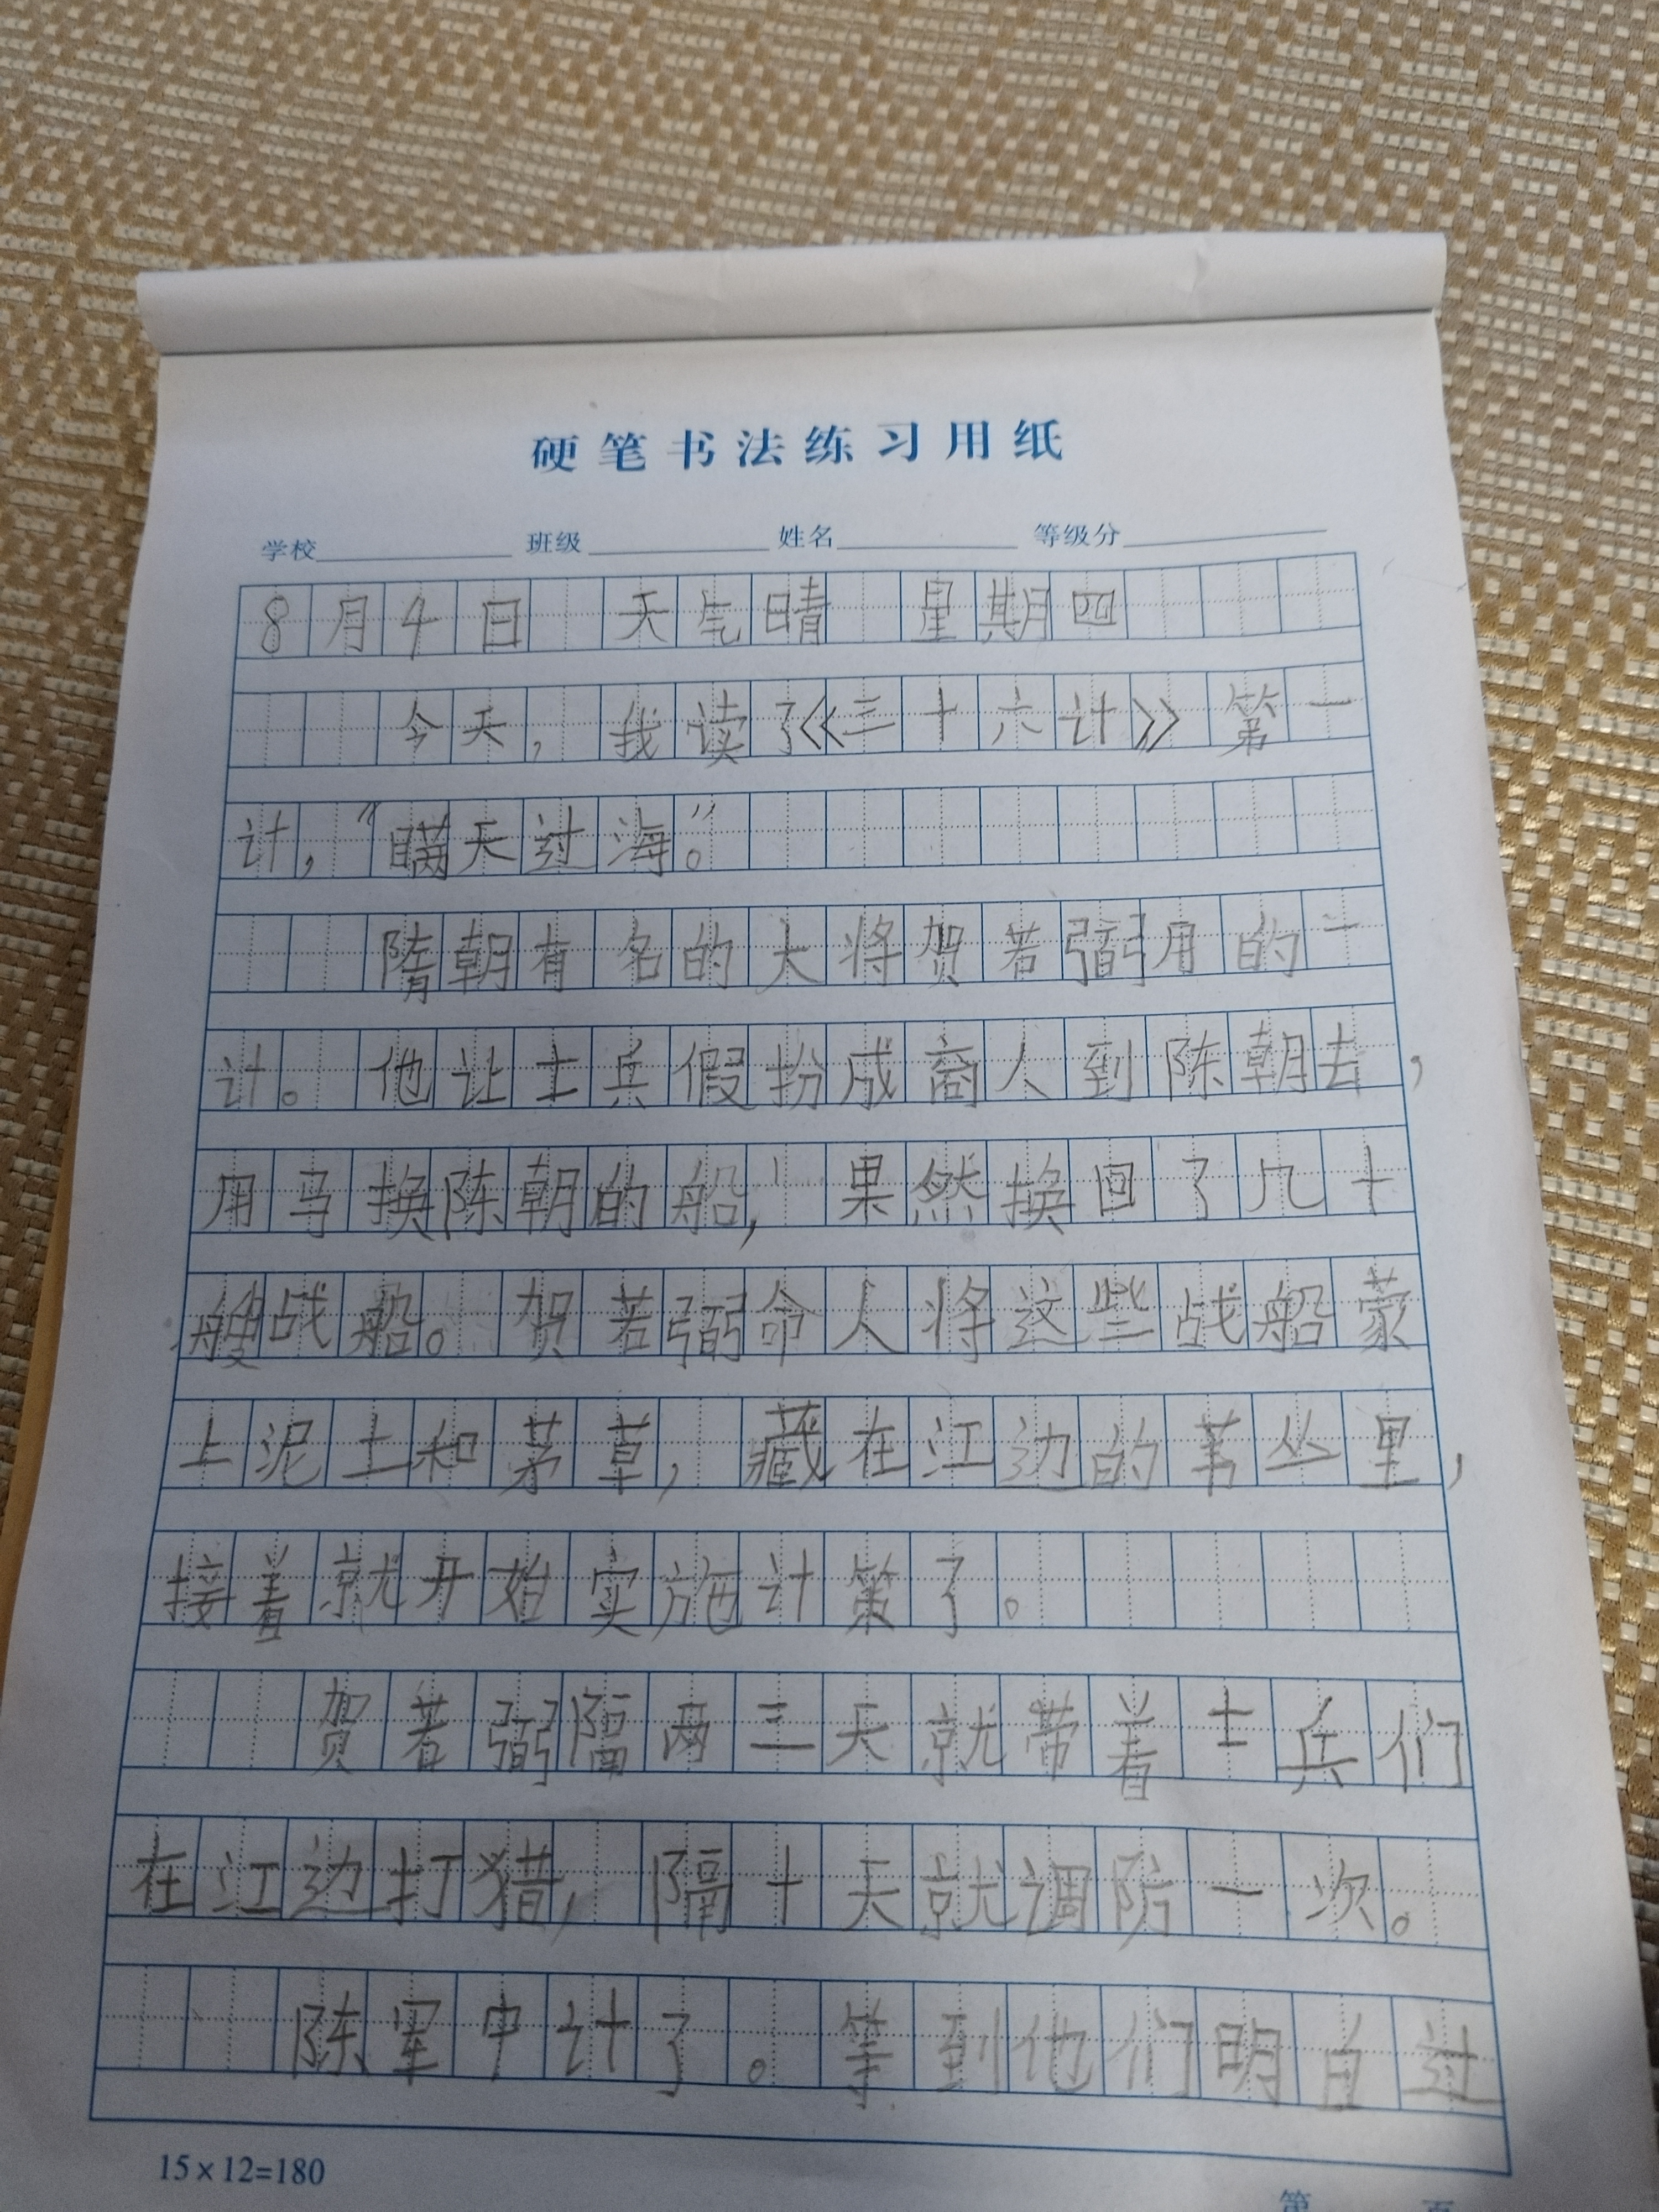 硬笔书法练习用纸
学校 班级 姓名 等级分
8月4日 天气晴 星期四
今天，我读了《三十六计》第一
计，“瞒天过海。”
隋朝有名的大将贺若弼用的一
计。他让士兵假扮成商人到陈朝去，
用马换陈朝的船，果然换回了几十
艘战船。贺若弼命人将这些战船蒙
上泥土和茅草，藏在江边的苇丛里，
接着就开始实施计策了。
贺若弼隔两三天就带着士兵们
在江边打猎，隔十天就调防一次。
陈军中计了。等到他们明白过
15×12=180
第 页